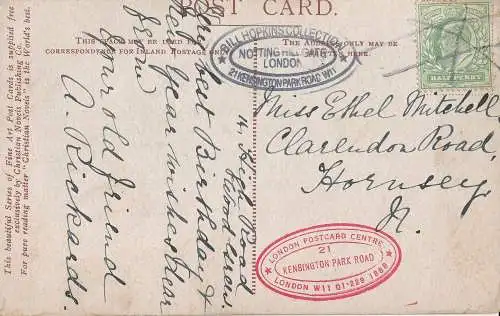 POST CARD.
THIS SPACE MAY BE USED FOR
CORRESPONDENCE FOR INLAND POSTAGE ONLY
THE ADDRESS ONLY MAY BE
WRITTEN HERE.
BILL HOPKINS COLLECTION
NOTTING HILL GATE
LONDON
21 KENSINGTON PARK ROAD W11
HALFPENNY
Miss Ethel Mitchell
Clarendon Road,
Hornsey
N.
LONDON POSTCARD CENTRE
21
KENSINGTON PARK ROAD
LONDON W11 01-229 1888
14 High Road
Wood Green.
best Birthday &
New Year wishes dear
from
your old friend
A. Rickards.
This beautiful Series of Fine Art Post Cards is supplied free
exclusively by Christian Novels Publishing Co.
For pure reading matter "Christian Novels" is the World's best.